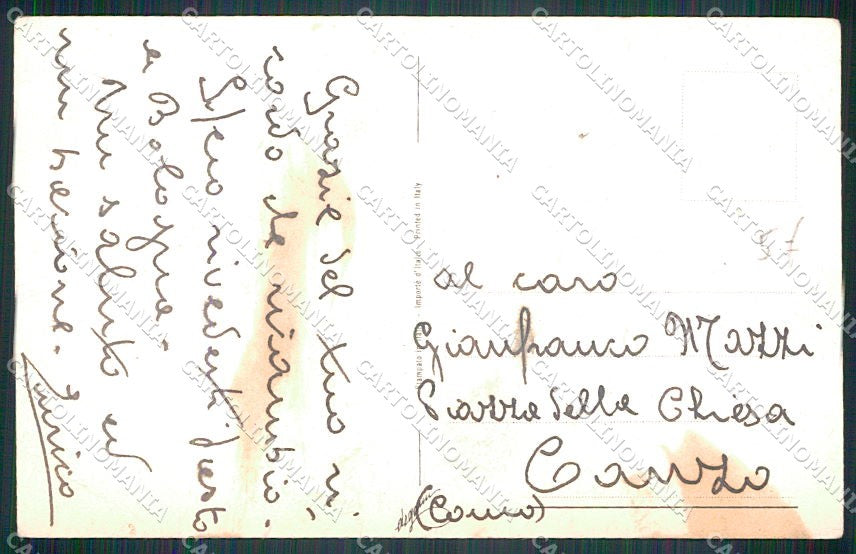 Grazie del tuo ri-
cordo che ricambio.
Spero rivederti presto
a Bologna.
Un saluto ed
un bacione. Enrico
Stampato in Italia - Importé d'Italie - Printed in Italy
al caro
Gianfranco Mazzi
Piazza della Chiesa
Canzo
(Como)
CARTOLINOMANIA